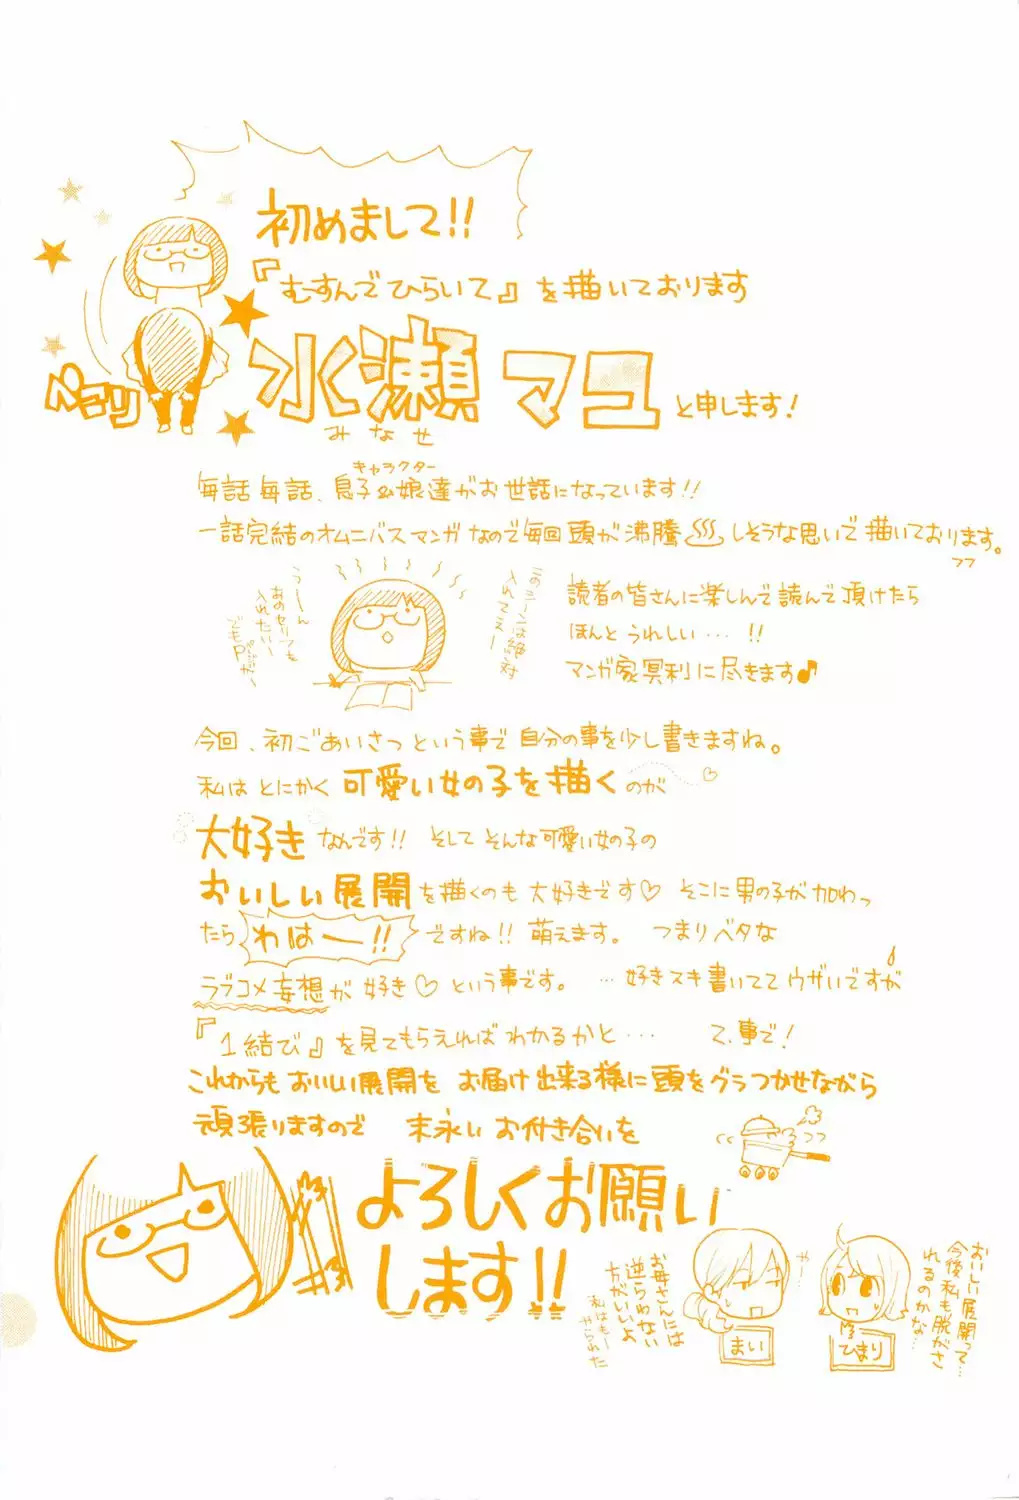 初めまして!!
『むすんでひらいて』を描いております
水瀬 マユと申します!
みなせ
ペコッ
キャラクター
毎話毎話、息子&娘達がお世話になっています!!
一話完結のオムニバスマンガなので毎回頭が沸騰しそうな思いで描いております。
うーん
あのセリフも
入れたいー
でもPが…
このシーンは絶対
入れてェー
読者の皆さんに楽しんで読んで頂けたら
ほんとうれしい…!!
マンガ家冥利に尽きます♪
今回、初ごあいさつという事で自分の事を少し書きますね。
私はとにかく可愛い女の子を描くのが
大好きなんです!! そしてそんな可愛い女の子の
おいしい展開を描くのも大好きです♡ そこに男の子が加わっ
たらわはー!!ですね!! 萌えます。 つまりベタな
ラブコメ妄想が好き♡という事です。 …好きスキ書いててウザいですが
『1結び』を見てもらえればわかるかと… て、事で!
これからもおいしい展開をお届け出来る様に頭をグラつかせながら
頑張りますので 末永いお付き合いを
よろしくお願い
します!!
おいしい展開って…
今後私も脱がさ
れるのかな…
ひまり
や
まい
お母さんには
逆らわない
方がいいよ
私はもー
やられた